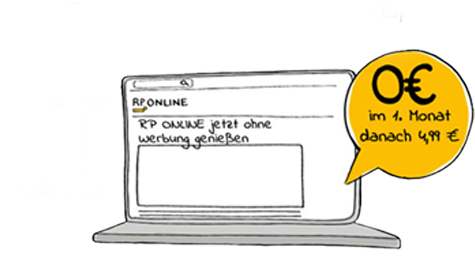 RP ONLINE
RP ONLINE jetzt ohne
werbung genießen
0€
im 1. Monat
danach 4,99 €